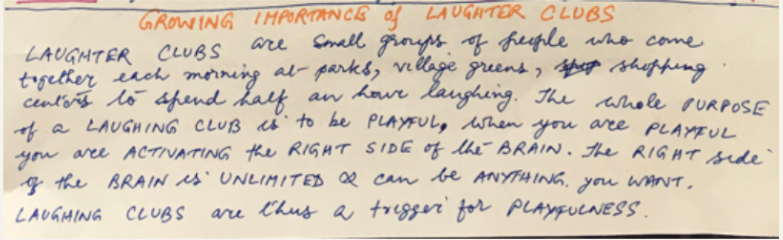 GROWING IMPORTANCE of LAUGHTER CLUBS
LAUGHTER CLUBS are small groups of people who come
together each morning at parks, village greens, shopping
centers to spend half an hour laughing. The whole PURPOSE
of a LAUGHING CLUB is to be PLAYFUL, when you are PLAYFUL
you are ACTIVATING the RIGHT SIDE of the BRAIN. The RIGHT side
of the BRAIN is UNLIMITED & can be ANYTHING. you WANT.
LAUGHING CLUBS are thus a trigger for PLAYFULNESS.